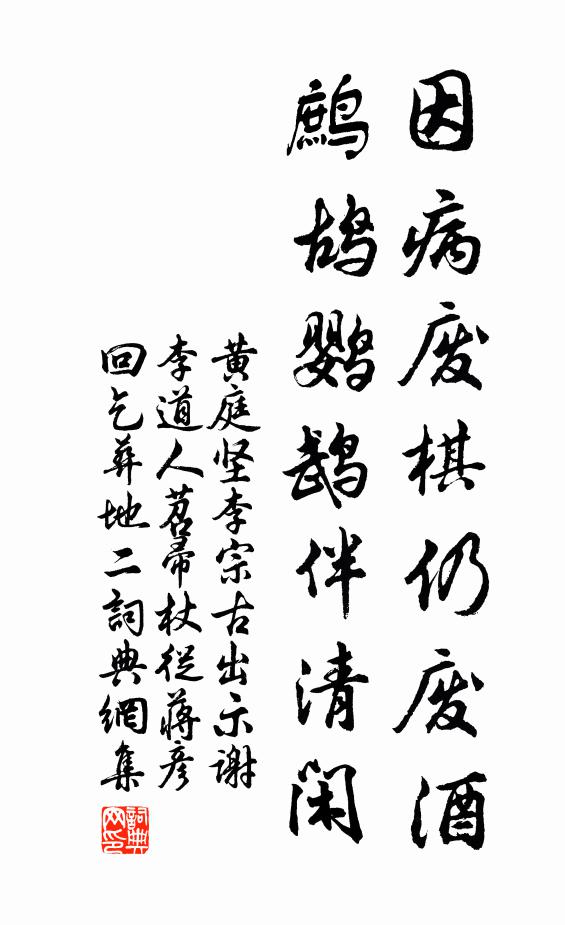 因病废棋仍废酒
鹧鸪鹦鹉伴清闲
黄庭坚李宗古出示谢
李道人苕帚杖從蒋彦
回乞葬地二詞典網集
詞典網印